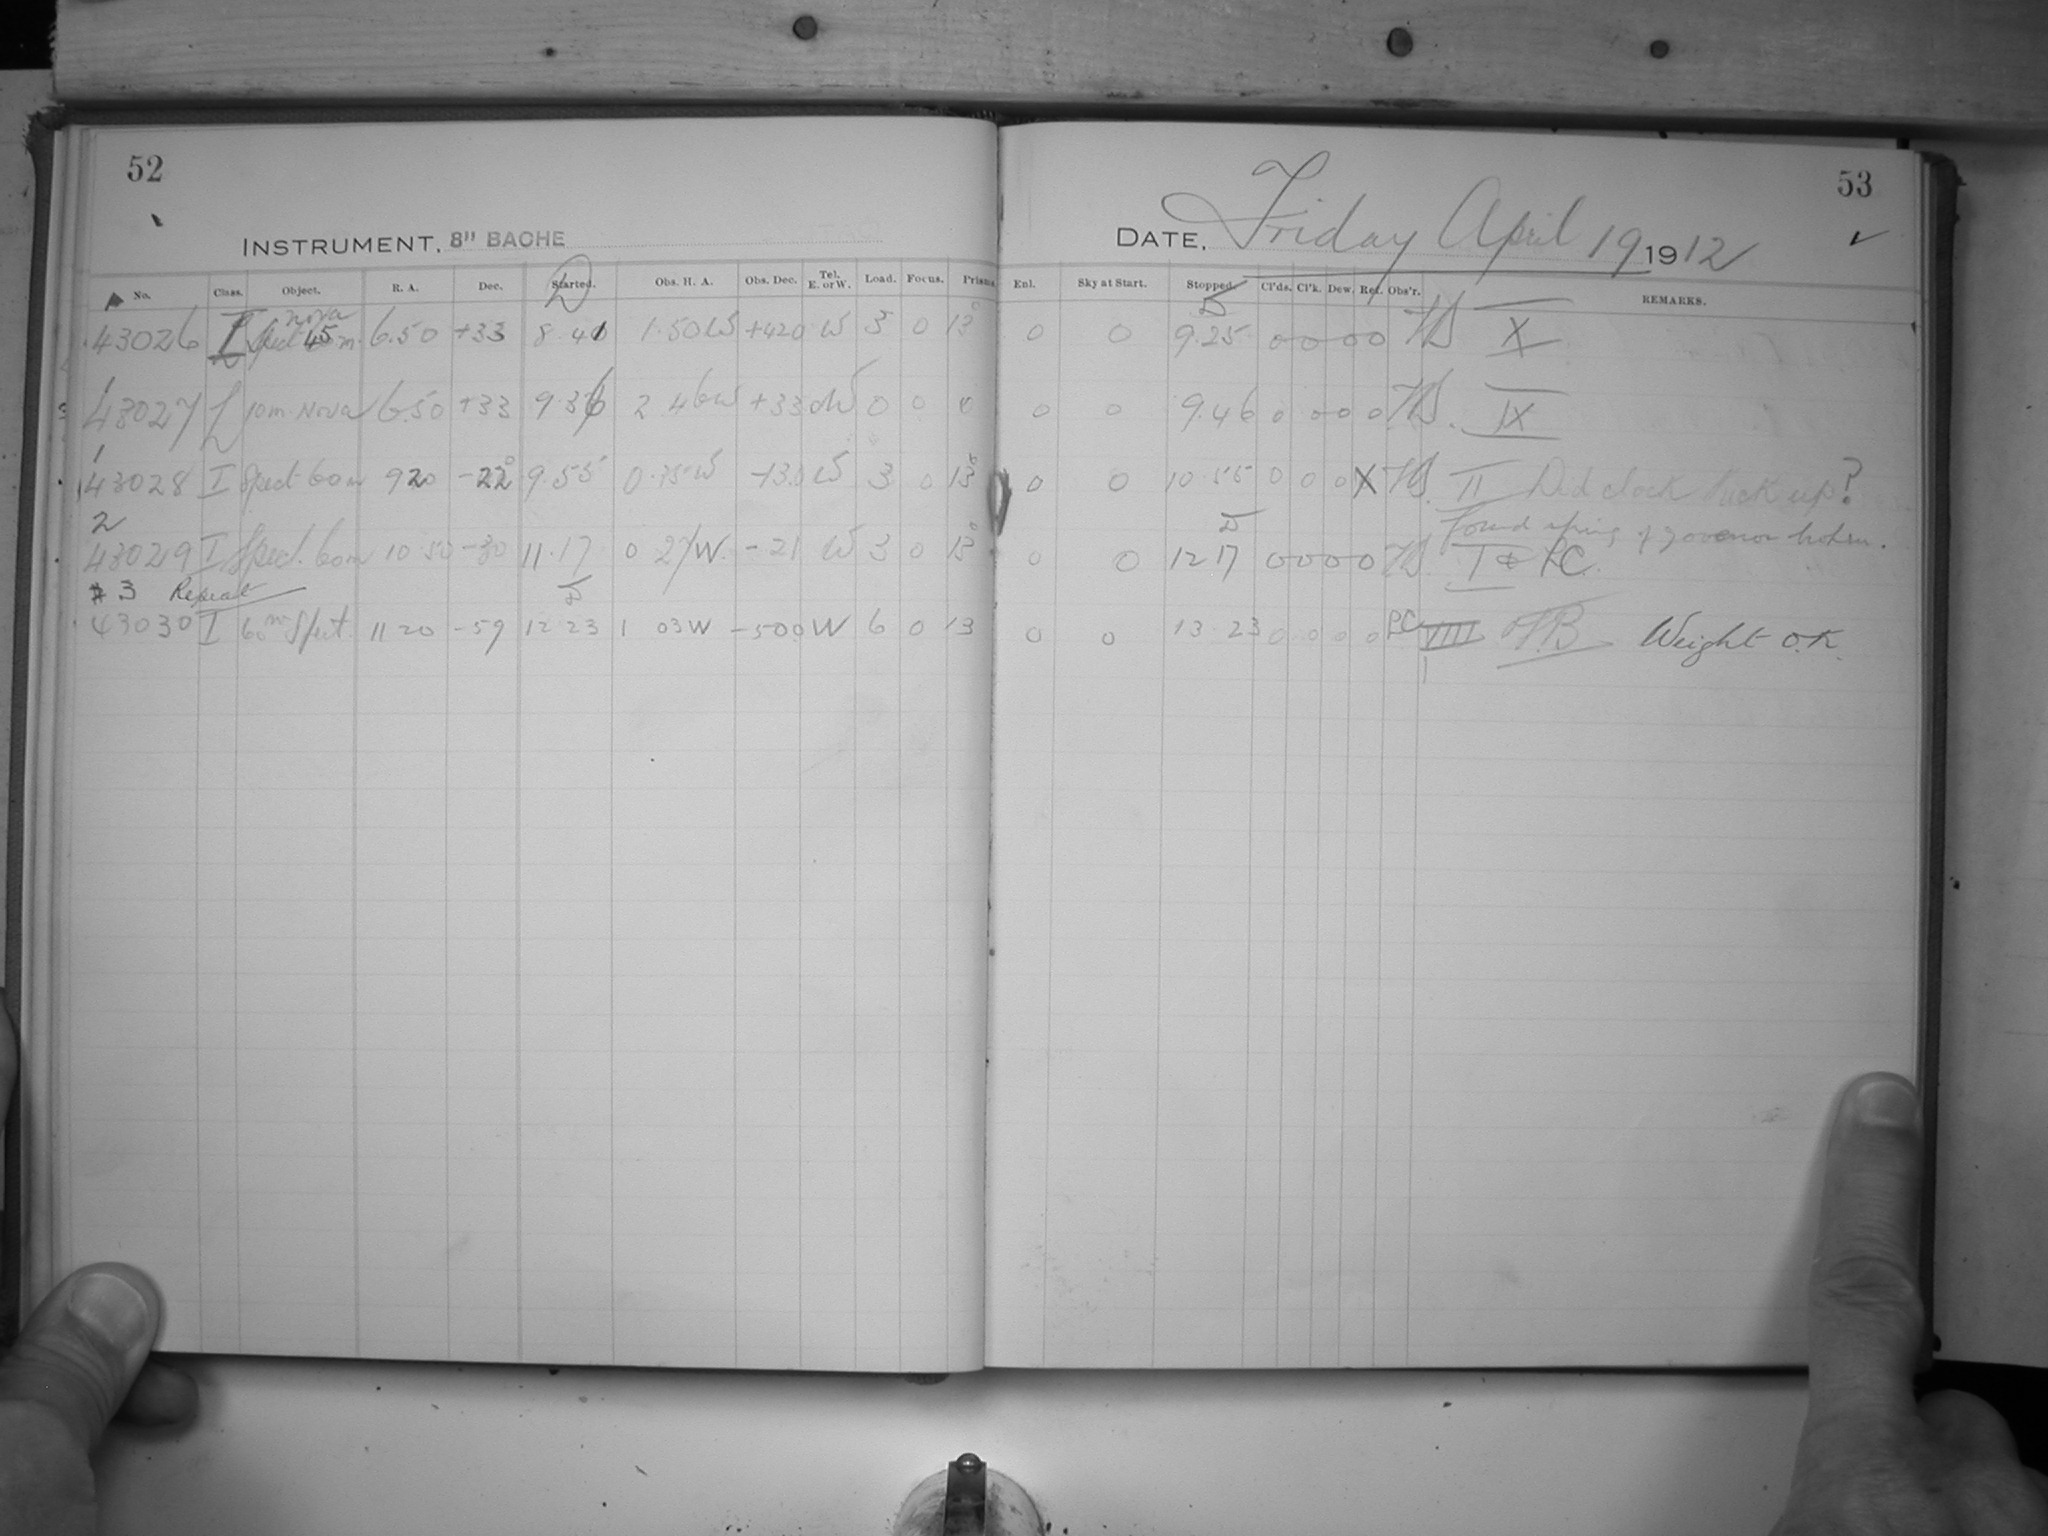 52
INSTRUMENT. 8" BACHE
No. Class. Object. R. A. Dec. Started. Obs. H. A. Obs. Dec. Tel. E. or W. Load. Focus. Prisms
nova
43026 I Spect 45 m. 6.50 +33 8.40 1.50W +420 W 3 0 13°
43027 L 10m. Nova 6.50 +33 9.36 2 46W +330 W 0 0 0
1
43028 I Spect 60m 920 -22° 9.55 0.35W -13.0 W 3 0 13°
2
43029 I Spect. 60m 10.50 -30 11.17 0 27W. -21 W 3 0 13°
3 Repeat
43030 I 60m Spect. 11 20 -59 12 23 1 03W -500 W 6 0 13
53
DATE, Friday April 19 1912
Enl. Sky at Start. Stopped. Cl'ds. Cl'k. Dew. Ref. Obs'r. REMARKS.
0 0 9.25 0 0 0 0 X
0 0 9.46 0 0 0 0 IX
0 0 10.55 0 0 0 X II Did clock pick up?
Found spring of governor broken.
0 0 12 17 0 0 0 0 I & RC.
0 0 13 23 0 0 0 0 RC Weight O.K.